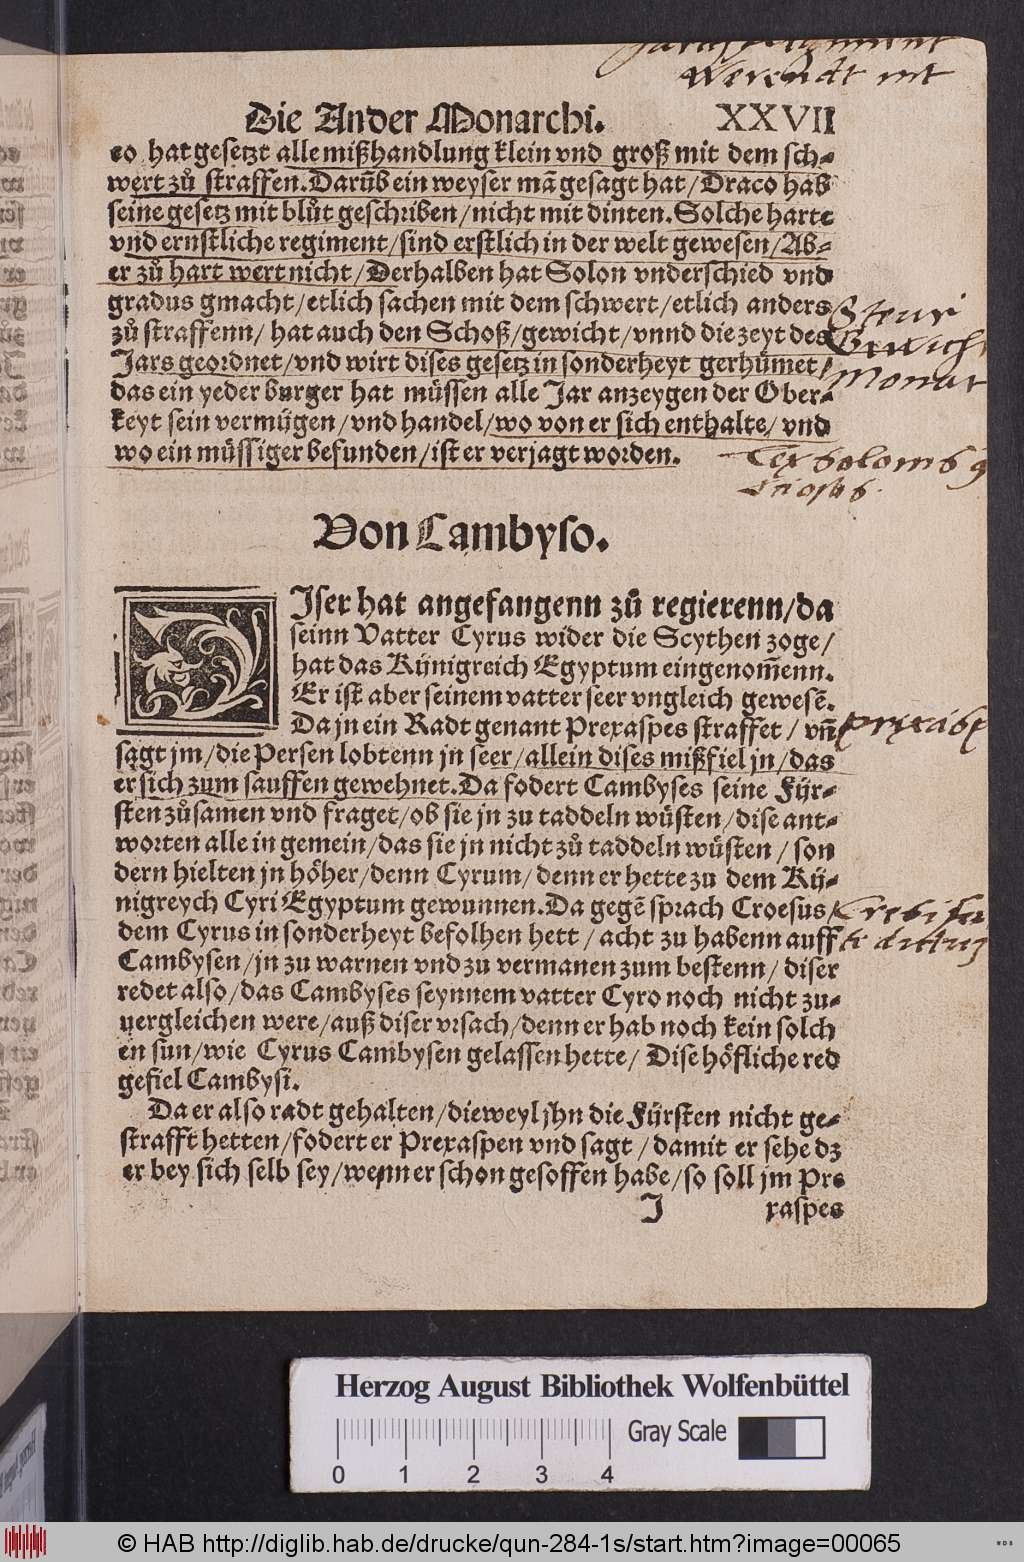 Werendt nit
Die Ander Monarchi. XXVII
co hat gesetzt alle mißhandlung klein vnd groß mit dem sch⸗
wert zů straffen. Darũb ein weyser mã gesagt hat / Draco hab
seine gesetz mit blůt geschriben / nicht mit dinten. Solche harte
vnd ernstliche regiment / sind erstlich in der welt gewesen / Ab⸗
er zů hart wert nicht / Derhalben hat Solon vnderschied vnd
gradus gmacht / etlich sachen mit dem schwert / etlich anders
zů straffenn / hat auch den Schoß / gewicht / vnnd die zeyt des
Jars geordnet / vnd wirt dises gesetz in sonderheyt gerhůmet /
das ein yeder burger hat müssen alle Jar anzeygen der Ober⸗
keyt sein vermügen / vnd handel / wo von er sich enthalte / vnd
wo ein müssiger befunden / ist er verjagt worden.
Monat
Lex Solonis
Von Cambyso.
DIser hat angefangenn zů regierenn / da
seinn Vatter Cyrus wider die Scythen zoge /
hat das Künigreich Egyptum eingenom̃enn.
Er ist aber seinem vatter seer vngleich gewesẽ.
Da jn ein Radt genant Prexaspes straffet / vñ
sagt jm / die Persen lobtenn jn seer / allein dises mißfiel jn / das
er sich zum sauffen gewehnet. Da fodert Cambyses seine Für⸗
sten zůsamen vnd fraget / ob sie jn zu taddeln wüsten / dise ant⸗
worten alle in gemein / das sie jn nicht zů taddeln wüsten / son
dern hielten jn höher / denn Cyrum / denn er hette zu dem Kü⸗
nigreych Cyri Egyptum gewunnen. Da gegẽ sprach Croesus /
dem Cyrus in sonderheyt befolhen hett / acht zu habenn auff
Cambysen / jn zu warnen vnd zu vermanen zum bestenn / diser
redet also / das Cambyses seynnem vatter Cyro noch nicht zu⸗
uergleichen were / auß diser vrsach / denn er hab noch kein solch
en sun / wie Cyrus Cambysen gelassen hette / Dise höfliche red
gefiel Cambysi.
Da er also radt gehalten / dieweyl jhn die Fürsten nicht ge⸗
strafft hetten / fodert er Prexaspen vnd sagt / damit er sehe dz
er bey sich selb sey / wenn er schon gesoffen habe / so soll jm Pre
I xaspes
Herzog August Bibliothek Wolfenbüttel
Gray Scale
0 1 2 3 4
© HAB http://diglib.hab.de/drucke/qun-284-1s/start.htm?image=00065